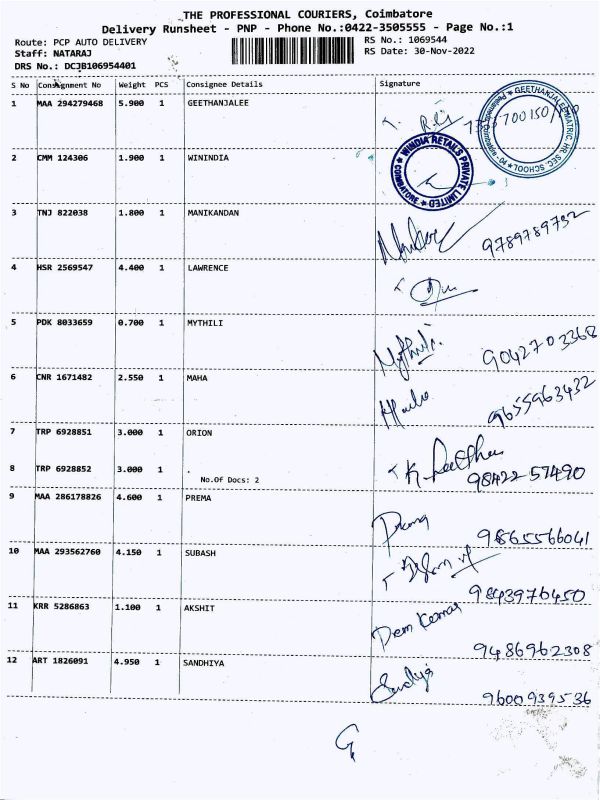 THE PROFESSIONAL COURIERS, Coimbatore
Delivery Runsheet - PNP - Phone No.:0422-3505555 - Page No.:1
Route: PCP AUTO DELIVERY RS No.: 1069544
Staff: NATARAJ RS Date: 30-Nov-2022
DRS No.: DCJB106954401
S No Consignment No Weight PCS Consignee Details Signature
1 MAA 294279468 5.900 1 GEETHANJALEE
GEETHANJALEE MATRIC. HR. SEC. SCHOOL
2 CMM 124306 1.900 1 WININDIA
WINDIA RETAILS PRIVATE LIMITED
COIMBATORE
3 TNJ 822038 1.800 1 MANIKANDAN
9789789732
4 HSR 2569547 4.400 1 LAWRENCE
5 PDK 8033659 0.700 1 MYTHILI Mythili
9042703368
6 CNR 1671482 2.550 1 MAHA Maha
9655963432
7 TRP 6928851 3.000 1 ORION
8 TRP 6928852 3.000 1 .
No.Of Docs: 2
98422 57490
9 MAA 286178826 4.600 1 PREMA Prema
9865566041
10 MAA 293562760 4.150 1 SUBASH
9843976450
11 KRR 5286863 1.100 1 AKSHIT Prem Kumar
9486962308
12 ART 1826091 4.950 1 SANDHIYA Sandhiya
9600939536